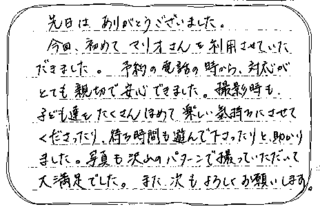 先日は ありがとうございました。
今回、初めて マリオさんを利用させていた
だきました。 予約の電話の時から、対応が
とても親切で安心できました。撮影時も、
子ども達をたくさんほめて楽しい気持ちにさせて
くださったり、待ち時間も遊んで下さったりと、助かり
ました。写真も沢山のパターンで撮っていただいて
大満足でした。また次もよろしくお願いします。